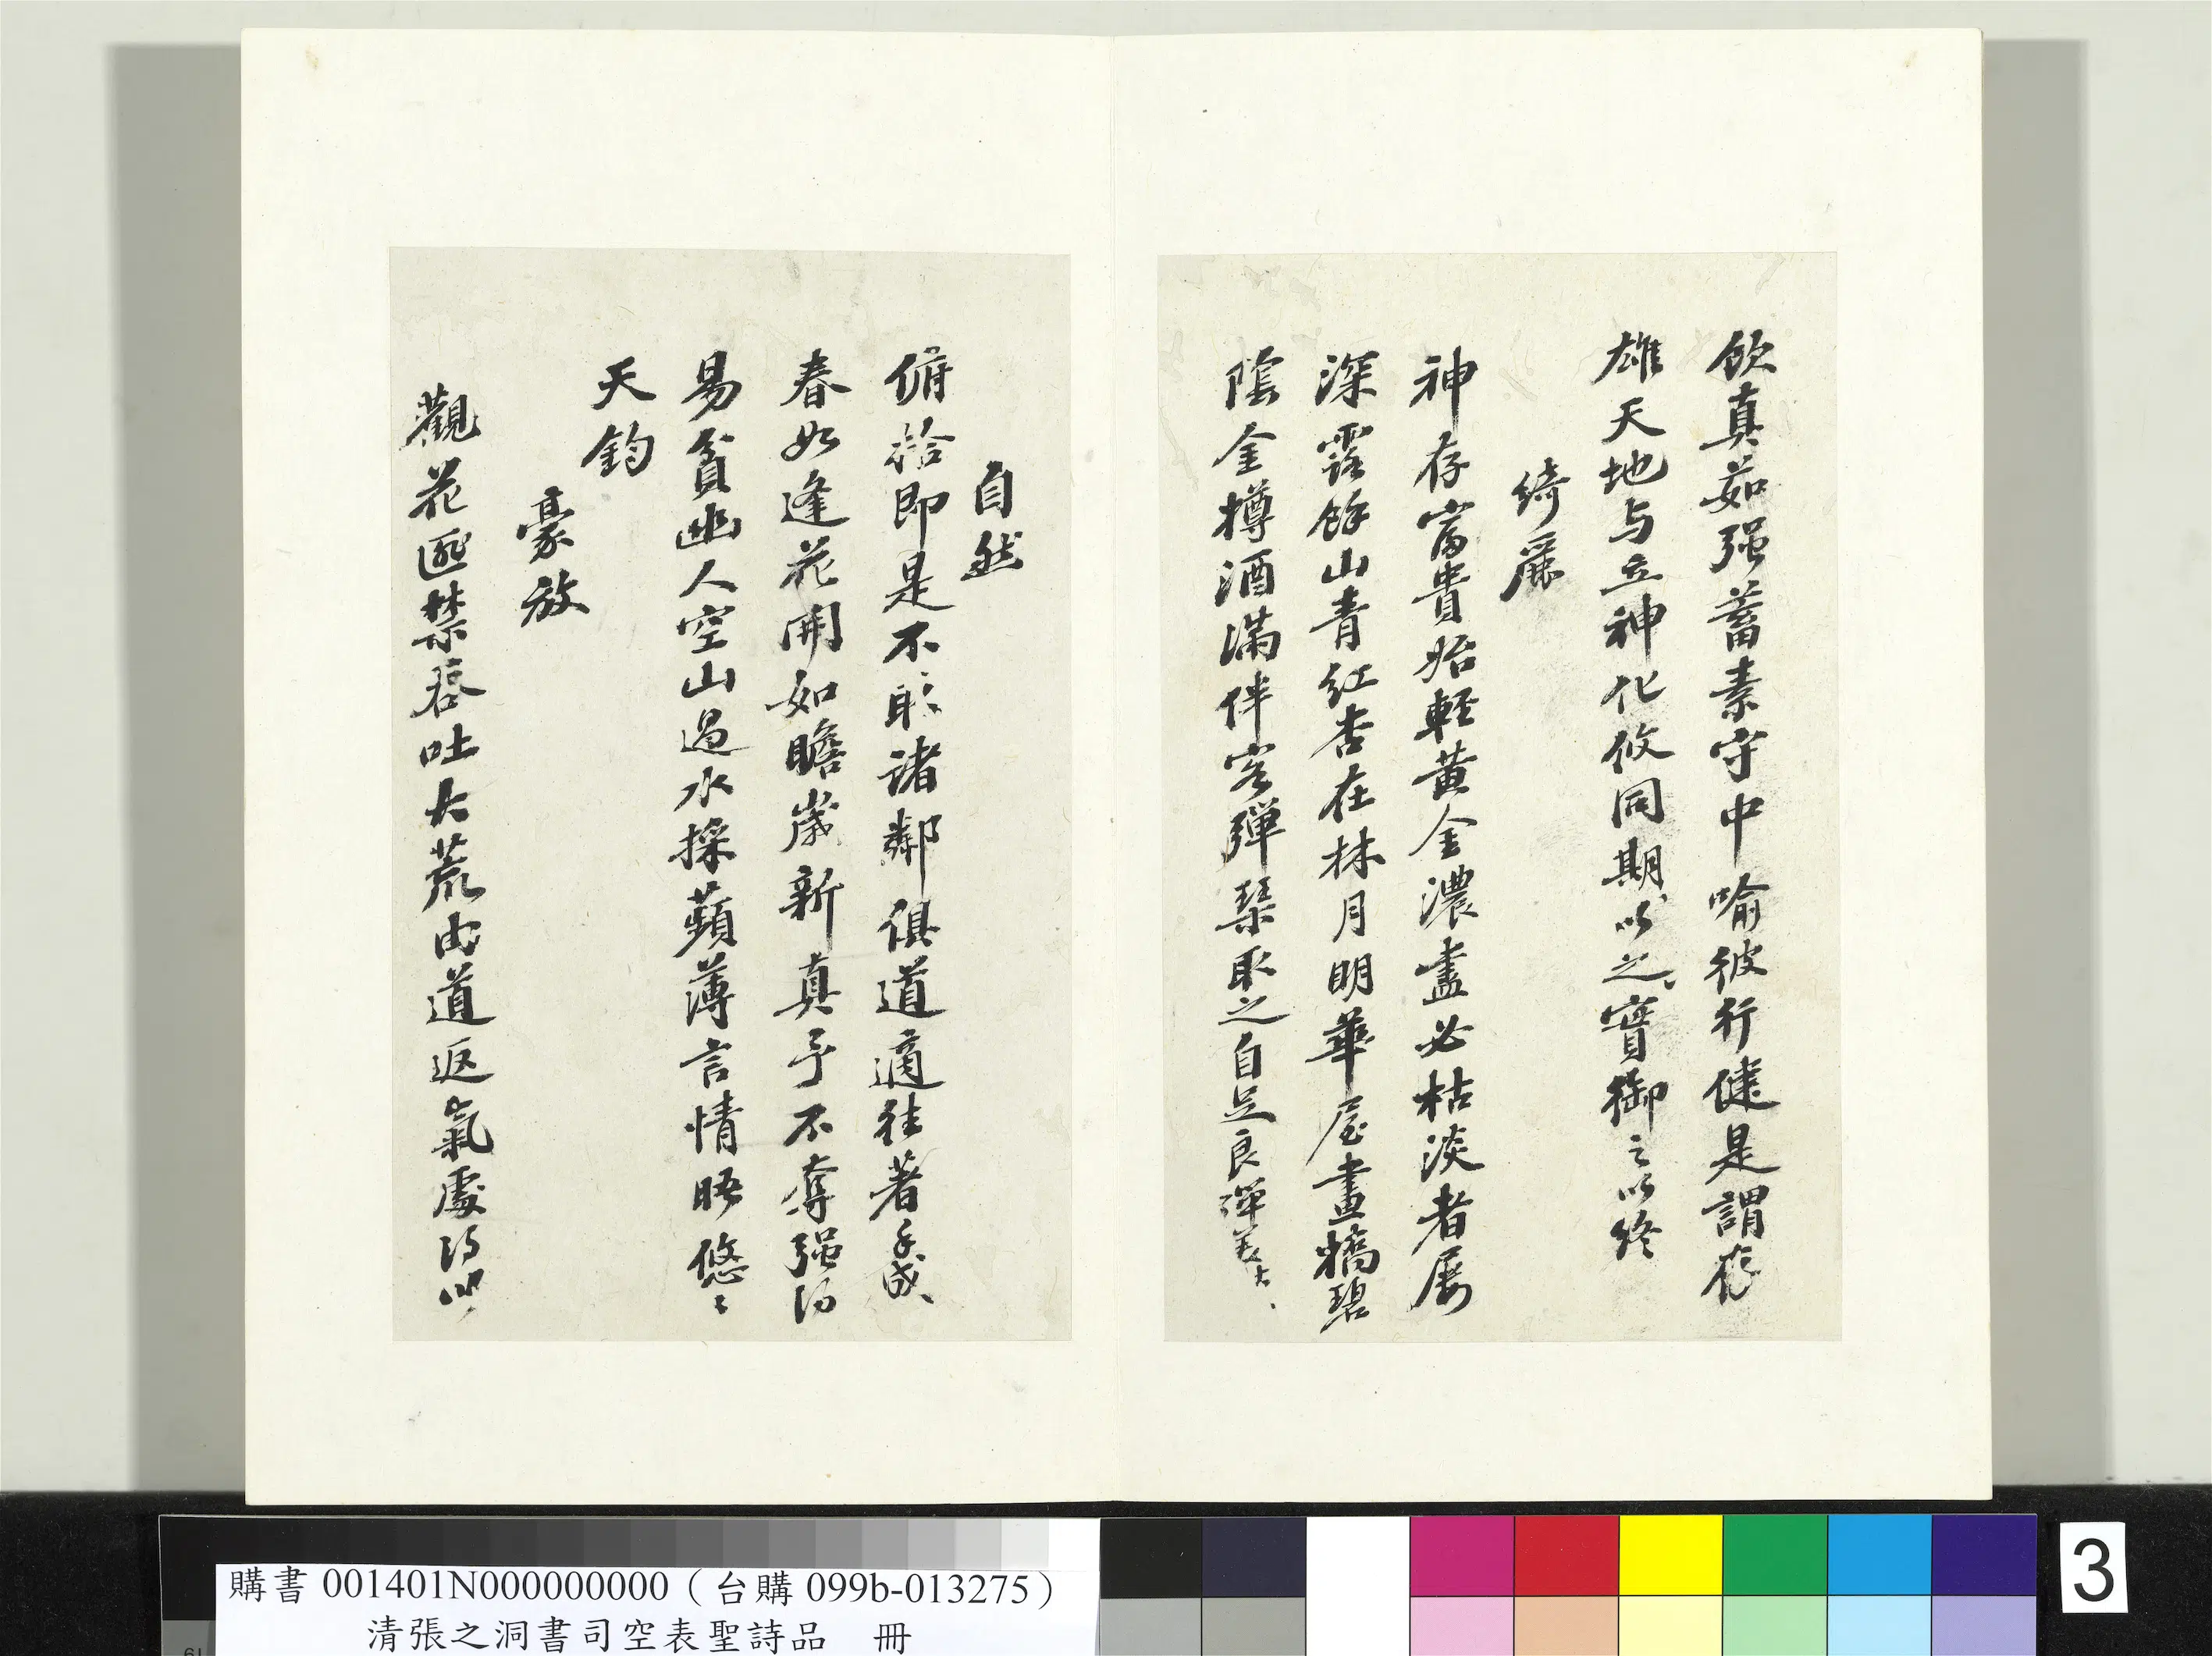 飲真茹强蓄素守中喻彼行健是謂存
雄天地与立神化攸同期以之實御之以終
綺麗
神存富貴始輕黃金濃盡必枯淡者屢
深露餘山青紅杏在林月明華屋畫橋碧
陰金樽酒滿伴客彈琴取之自足良殫美
自然
俯拾即是不取諸鄰俱道適往著手成
春如逢花開如瞻歲新真予不奪强得
易貧幽人空山過水採蘋薄言情晤悠〻
天鈞
豪放
觀花匪禁吞吐大荒由道返氣處得以
購書 001401N000000000（台購 099b-013275）
清張之洞書司空表聖詩品 冊
3
19